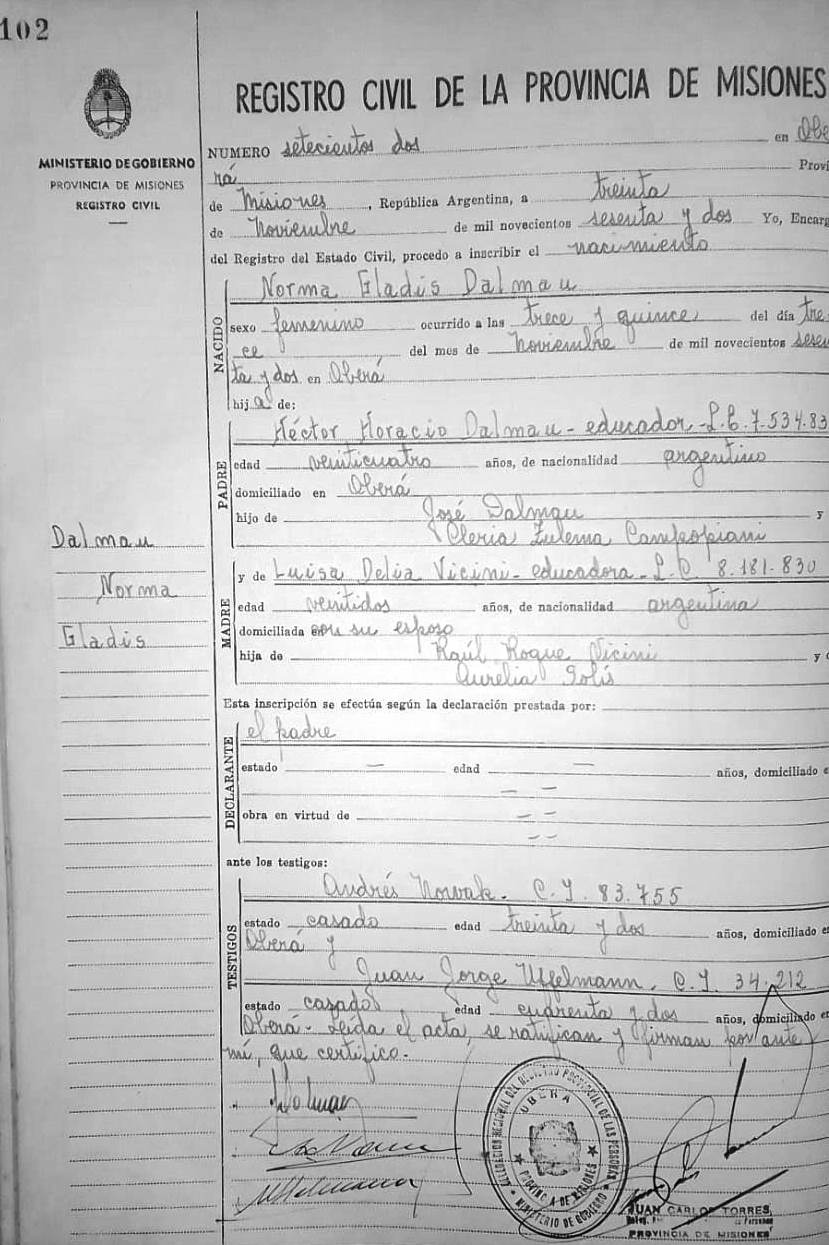 102
REGISTRO CIVIL DE LA PROVINCIA DE MISIONES
MINISTERIO DE GOBIERNO
PROVINCIA DE MISIONES
REGISTRO CIVIL
NUMERO setecientos dos en Obe
rá Provi
de Misiones, República Argentina, a treinta
de Noviembre de mil novecientos sesenta y dos Yo, Encarg
del Registro del Estado Civil, procedo a inscribir el nacimiento
NACIDO
Norma Gladis Dalmau
sexo femenino ocurrido a las trece y quince del día tre
ce del mes de Noviembre de mil novecientos sesen
ta y dos en Oberá
hija de:
PADRE
Héctor Horacio Dalmau - educador - L.E. 7.534.83
edad venticuatro años, de nacionalidad argentino
domiciliado en Oberá
hijo de José Dalmau y
Cleria Zulema Campopiani
Dalmau
Norma
Gladis
MADRE
y de Luisa Delia Vicini - educadora - L.C. 8.181.830
edad ventidos años, de nacionalidad argentina
domiciliada con su esposo
hija de Raúl Roque Vicini y
Aurelia Solís
Esta inscripción se efectúa según la declaración prestada por:
DECLARANTE
el padre
estado — edad — años, domiciliado e
— —
obra en virtud de — —
— —
ante los testigos:
TESTIGOS
Andrés Nowak. C.I. 83.755
estado casado edad treinta y dos años, domiciliado en
Oberá y
Juan Jorge Uffelmann. C.I. 34.212
estado casado edad cuarenta y dos años, domiciliado en
Oberá - Leida el acta, se ratifican y firman por ante
mí, que certifico.
OBERA
PROVINCIA DE MISIONES
MINISTERIO DE GOBIERNO
JUAN CARLOS TORRES
PROVINCIA DE MISIONES